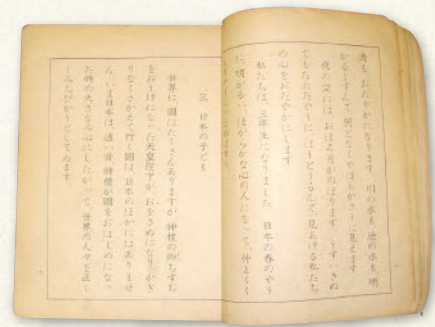 海も、おだやかになります。川の水も、池の水も、明
かるくすんで、何となくやはらかさうに見えます。
夜の空には、おぼろ月がのぼります。うすいきぬ
でもながれたやうに、ぼうとうるんで、見あげる私たち
の心をおだやかにします。
私たちは、三年生になりました。日本の春のやう
に、明かるい、ほがらかな心の人になって、仲よくく
三 日本の子ども
世界に、國はたくさんありますが、神様の御ちすぢ
をおうけになった天皇陛下が、おをさめになり、かぎ
りなくさかえて行く國は、日本のほかにはありませ
ん。いま日本は、遠い昔、神様が國をおはじめになっ
た時の大きな心にしたがって、世界の人々を正
しくみちびかうとしてゐます。